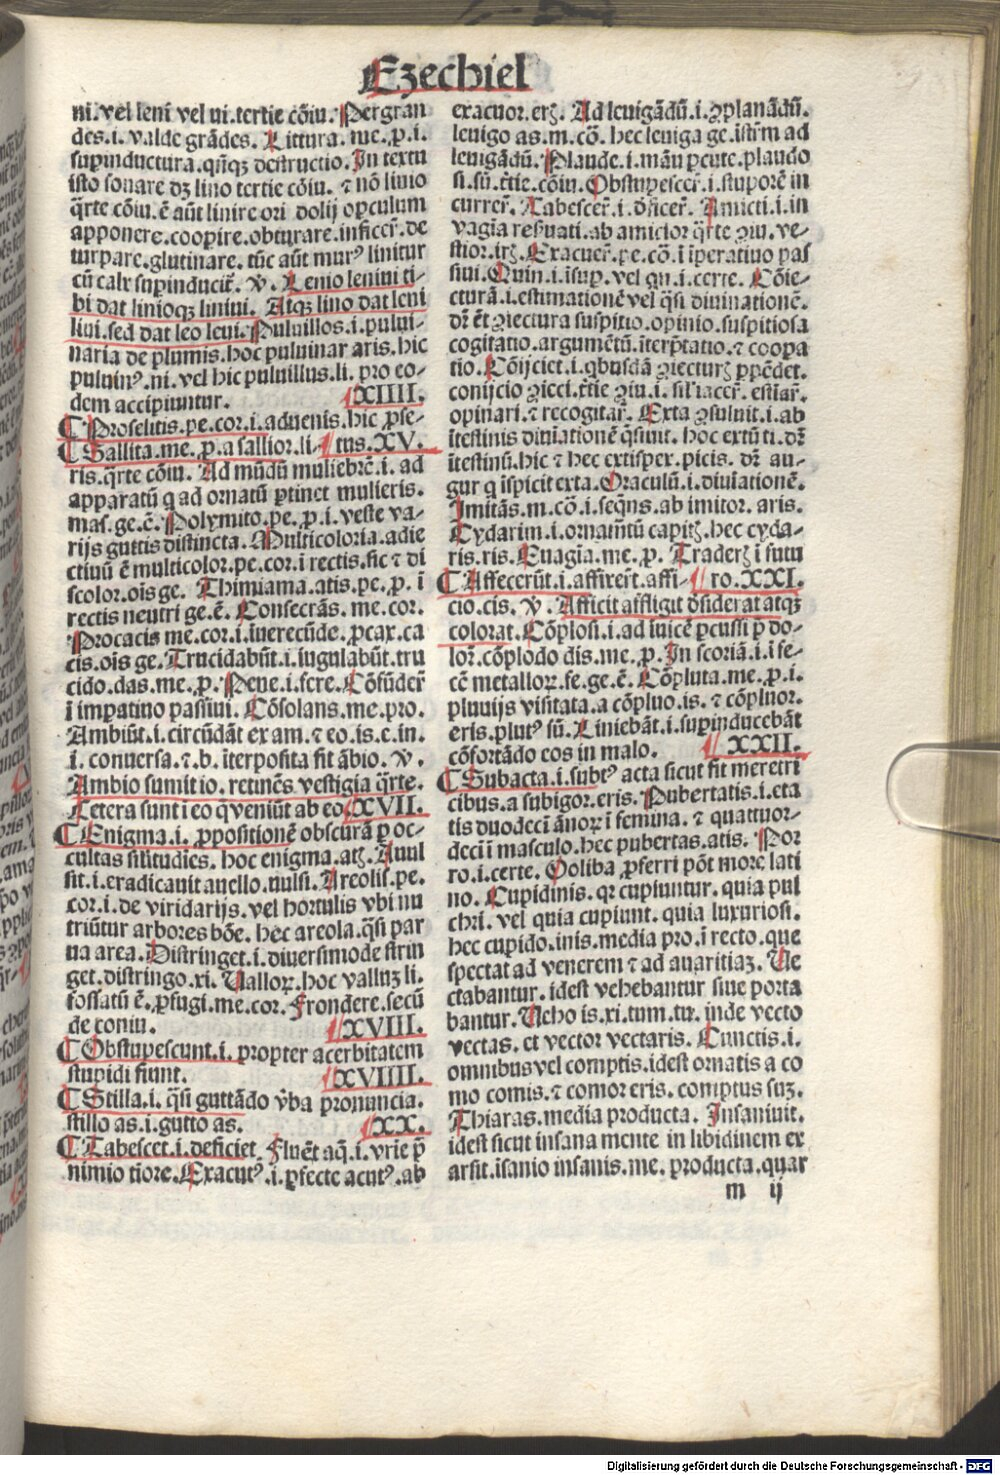 Ezechiel
ni. vel leni vel ui. tertie cōiu. Pergran
des. i. valde grādes. Littura. me. p. i.
supinductura. qñqꝫ destructio. In textu
isto sonare dꝫ lino tertie cōiu. ⁊ nō linio
q̄rte cōiu. ē aūt linire ori dolij opculum
apponere. coopire. obturare. inficer̄. de
turpare. glutinare. tūc aūt murꝰ linitur
cū calx supinducit̄. v̄. Lenio leniui ti-
bi dat linioqꝫ liniui. Atqꝫ lino dat leui
liui. sed dat leo leui. Puluillos. i. pului-
naria de plumis. hoc puluinar aris. hic
puluinꝰ. ni. vel hic puluillus. li. pro eo-
dem accipiuntur. XIIII.
Proselitis. pe. cor. i. aduenis. hic ꝓse-
Sallita. me. ꝓ. a sallior. li- tus. XV.
ris. q̄rte cōiu. Ad mūdū muliebrē. i. ad
apparatū q ad ornatū ꝑtinet mulieris.
mas. ge. ē. Polymito. pe. ꝓ. i. veste va-
rijs guttis distincta. Multicoloria. adie
ctiuū ē multicolor. pe. cor. i rectis. sic ⁊ di
scolor. oīs ge. Thimiama. atis. pe. ꝓ. ī
rectis neutri ge. ē. Consecrās. me. cor.
Procacis me. cor. i. inuerecūde. ꝓcax. ca
cis. oīs ge. Trucidabūt. i. iugulabūt. tru
cido. das. me. ꝓ. Pene. i. fere. Cōfūder̄
ī impatiuo passiui. Cōsolans. me. pro.
Ambiūt. i. circūdāt ex am. ⁊ eo. is. e. in.
i. conuersa. ⁊. b. īterposita fit ābio. v̄.
Ambio sumit io. retinēs vestigia q̄rte.
Cetera sunt i eo q̄ veniūt ab eo. XVII.
Enigma. i. ꝓpositionē obscurā ꝑ oc-
cultas silitudies. hoc enigma. atꝭ. Auul
sit. i. eradicauit auello. nulsi. Areolis. pe.
cor. i. de viridarijs. vel hortulis vbi nu
triūtur arbores bōe. hec areola. q̄si par
ua area. Distringet. i. diuersimode strin
get. distringo. xi. Ualloꝝ. hoc vallūꝫ li.
fossatū ē. ꝓfugi. me. cor. Frondere. secū
de coniu. XVIII.
Obstupescunt. i. propter acerbitatem
stupidi fiunt. XVIIII.
Stilla. i. q̄si guttādo v̄ba pronuncia.
stillo as. i. gutto as. XX.
Tabescet. i. deficiet. Fluēt aq̄. i. vrie p̄
nimio tiore. Exacutꝰ. i. ꝑfecte acutꝰ. ab
exacuor. erꝭ. Ad leuigādū. i. ꝯplanādū.
leuigo as. m. cō. hec leuiga ge. istr̄m ad
leuigādū. Plaude. i. manu ꝑcute. plaudo
si. sū. t̄tie. cōiu. Obstupescer̄. i. stuporē in
currer̄. Tabescer̄. i. d̄ficer̄. Amicti. i. in
vagia reseruati. ab amicior q̄rte ꝯiu. ve-
stior. irꝭ. Exacuer̄. pe. cō. ī īperatiuo pas
siui. Quin. i. īsup. vel qn. i. certe. Cōie-
cturā. i. estimationē vel q̄si diuinationē.
dr̄ ēt ꝯiectura suspitio. opinio. suspitiosa
cogitatio. argumētū. īterp̄tatio. ⁊ coopa
tio. Cōijciet. i. qbusdā ꝯiecturꝭ ꝓpēdet.
conijcio ꝯieci. t̄tie ꝯiu. i. sil' iacer̄. estiar̄.
opinari. ⁊ recogitar̄. Exta ꝯsuluit. i. ab
ītestinis diuiationē q̄siuit. hoc extū ti. dr̄
ītestinū. hic ⁊ hec extispex. picis. dr̄ au-
gur q īspicit exta. Oraculū. i. diuiationē.
Imitās. m. cō. i. seqns. ab imitor. aris.
Cydarim. i. ornamtū capitꝭ. hec cyda-
ris. ris. Euagia. me. ꝓ. Traderꝭ ī futu
Affecerūt. i. affixert̄. affi- ro. XXI.
cio. cis. v̄. Afficit affligit d̄siderat atqꝫ
colorat. Cōplosi. i. ad inuicē ꝑcussi p̄ do-
lor̄. cōplodo dis. me. ꝓ. In scoriā. i. ī fe-
cē metalloꝝ. fe. ge. ē. Cōpluta. me. ꝓ. i.
pluuijs visitata. a cōpluo. is. ⁊ cōpluor.
eris. plutꝰ sū. Liniebāt. i. supinducebāt
cōfortādo cos in malo. XXII.
Subacta. i. subtꝰ acta sicut fit meretri
cibus. a subigor. eris. Pubertatis. i. eta
tis duodecī ānoꝝ ī femina. ⁊ quattuor-
decī ī masculo. hec pubertas. atis. Por
ro. i. certe. Ooliba ꝓferri pōt more lati
no. Cupidinis. qr cupiuntur. quia pul
chri. vel quia cupiunt. quia luxuriosi.
hec cupido. inis. media pro. ī recto. que
spectat ad venerem ⁊ ad auaritiaꝫ. Ue
ctabantur. idest vehebantur siue porta
bantur. Ueho is. xi. tum. tꝝ. inde vecto
vectas. et vector vectaris. Cunctis. i.
omnibus vel comptis. idest ornatis a co
mo comis. ⁊ comor eris. comptus suꝫ.
Thiaras. media producta. Insaniuit.
idest sicut insana mente in libidinem ex
arsit. isanio insanis. me. producta. quar
m ij
Digitalisierung gefördert durch die Deutsche Forschungsgemeinschaft - DFG